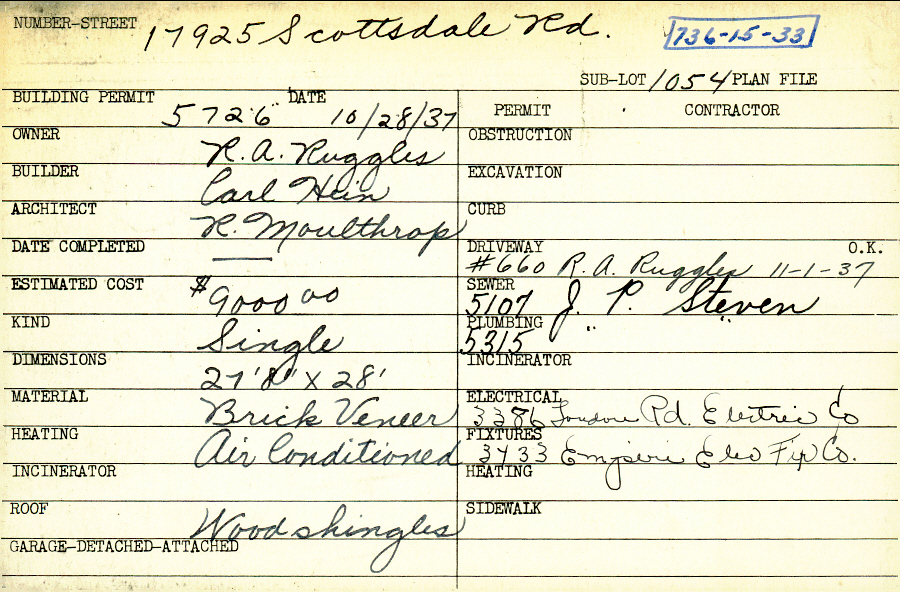 NUMBER-STREET 17925 Scottsdale Rd. 736-15-33
SUB-LOT 1054 PLAN FILE
BUILDING PERMIT 5726 DATE 10/28/37
PERMIT CONTRACTOR
OWNER R. A. Ruggles
OBSTRUCTION
BUILDER Carl Hein
EXCAVATION
ARCHITECT R. Moulthrop
CURB
DATE COMPLETED —
DRIVEWAY O.K.
#660 R. A. Ruggles 11-1-37
ESTIMATED COST $9000 00
SEWER
5107 J. P. Steven
KIND Single
PLUMBING
5315 " "
DIMENSIONS 27'8" x 28'
INCINERATOR
MATERIAL Brick Veneer
ELECTRICAL
3386 Rd. Electric Co
HEATING Air Conditioned
FIXTURES
3433 Empire Elec Fix Co.
INCINERATOR
HEATING
ROOF Wood shingles
SIDEWALK
GARAGE-DETACHED-ATTACHED